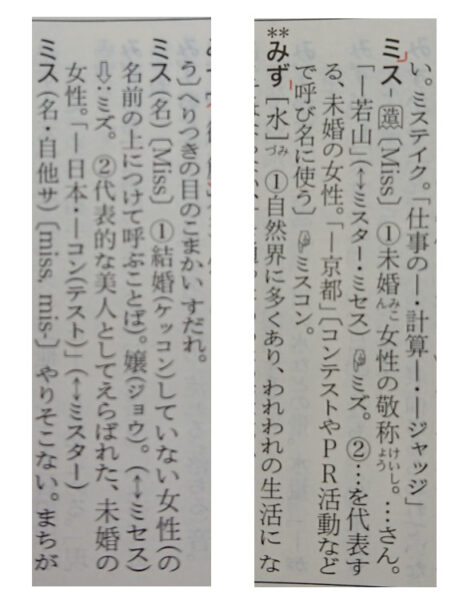 う〕へりつきの目のこまかい すだれ。
ミス(名)〔Miss〕 ①結婚(ケッコン)していない女性(の
名前の上につけて呼ぶことば)。嬢(ジョウ)。(↔ミセス)
⇩:ミズ。 ②代表的な美人としてえらばれた、未婚の
女性。「―日本・―コン(テスト)」(↔ミスター)
ミス(名・自他サ)〔miss, mis-〕 やりそこない。まちが
い。ミステイク。「仕事の―・計算―・―ジャッジ」
ミス- 〔Miss〕 ①未婚みこん女性の敬称けいしょう。…さん。
「―若山」(↔ミスター・ミセス) ☟ミズ。 ②…を代表す
る、未婚の女性。「―京都」〔コンテストやPR活動など
で呼び名に使う〕 ☟ミスコン。
**みず[水]づみ ①自然界に多くあり、われわれの生活にな